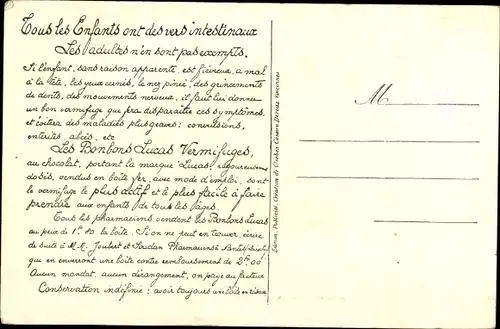 Tous les Enfants ont des vers intestinaux
Les adultes n'en sont pas exempts.
Si l'enfant, sans raison apparente, est fiévreux, a mal
à la tête, les yeux cernés, le nez pincé, des grincements
de dents, des mouvements nerveux, il faut lui donner
un bon vermifuge qui fera disparaître ces symptomes,
et évitera des maladies plus graves: convulsions,
entérites, abcès, etc
Les Bonbons Lucas Vermifuges,
au chocolat, portant la marque Lucas, rigoureusement
dosés, vendus en boîte fer, avec mode d'emploi, sont
le vermifuge le plus actif et le plus facile à faire
prendre aux enfants de tous les âges.
Tous les pharmaciens vendent les Bonbons Lucas
au prix de 1f.80 la boîte. Si on ne peut en trouver, écrire
de suite à M.M. Joubert et Soudan Pharmaciens à
qui en enverront une boîte contre remboursement de 2f.00
Aucun mandat, aucun dérangement, on paye au facteur
Conservation indéfinie: avoir toujours une boîte en réserve
Edition, Publicité, Création de Clichés Cesare
M